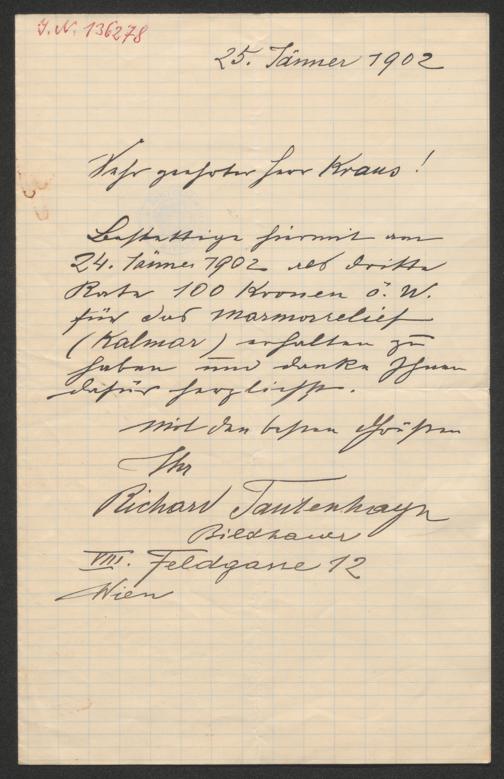 J. N. 136278
25. Jänner 1902
Sehr geehrter Herr Kraus!
Bestättige hiermit am
24. Jänner 1902 als dritte
Rate 100 Kronen ö. W.
für das Marmorrelief
(Kalmar) erhalten zu
haben und danke Ihnen
dafür herzlichst.
Mit den besten Grüßen
Ihr
Richard Tautenhayn
Bildhauer
VIII. Feldgasse 12
Wien